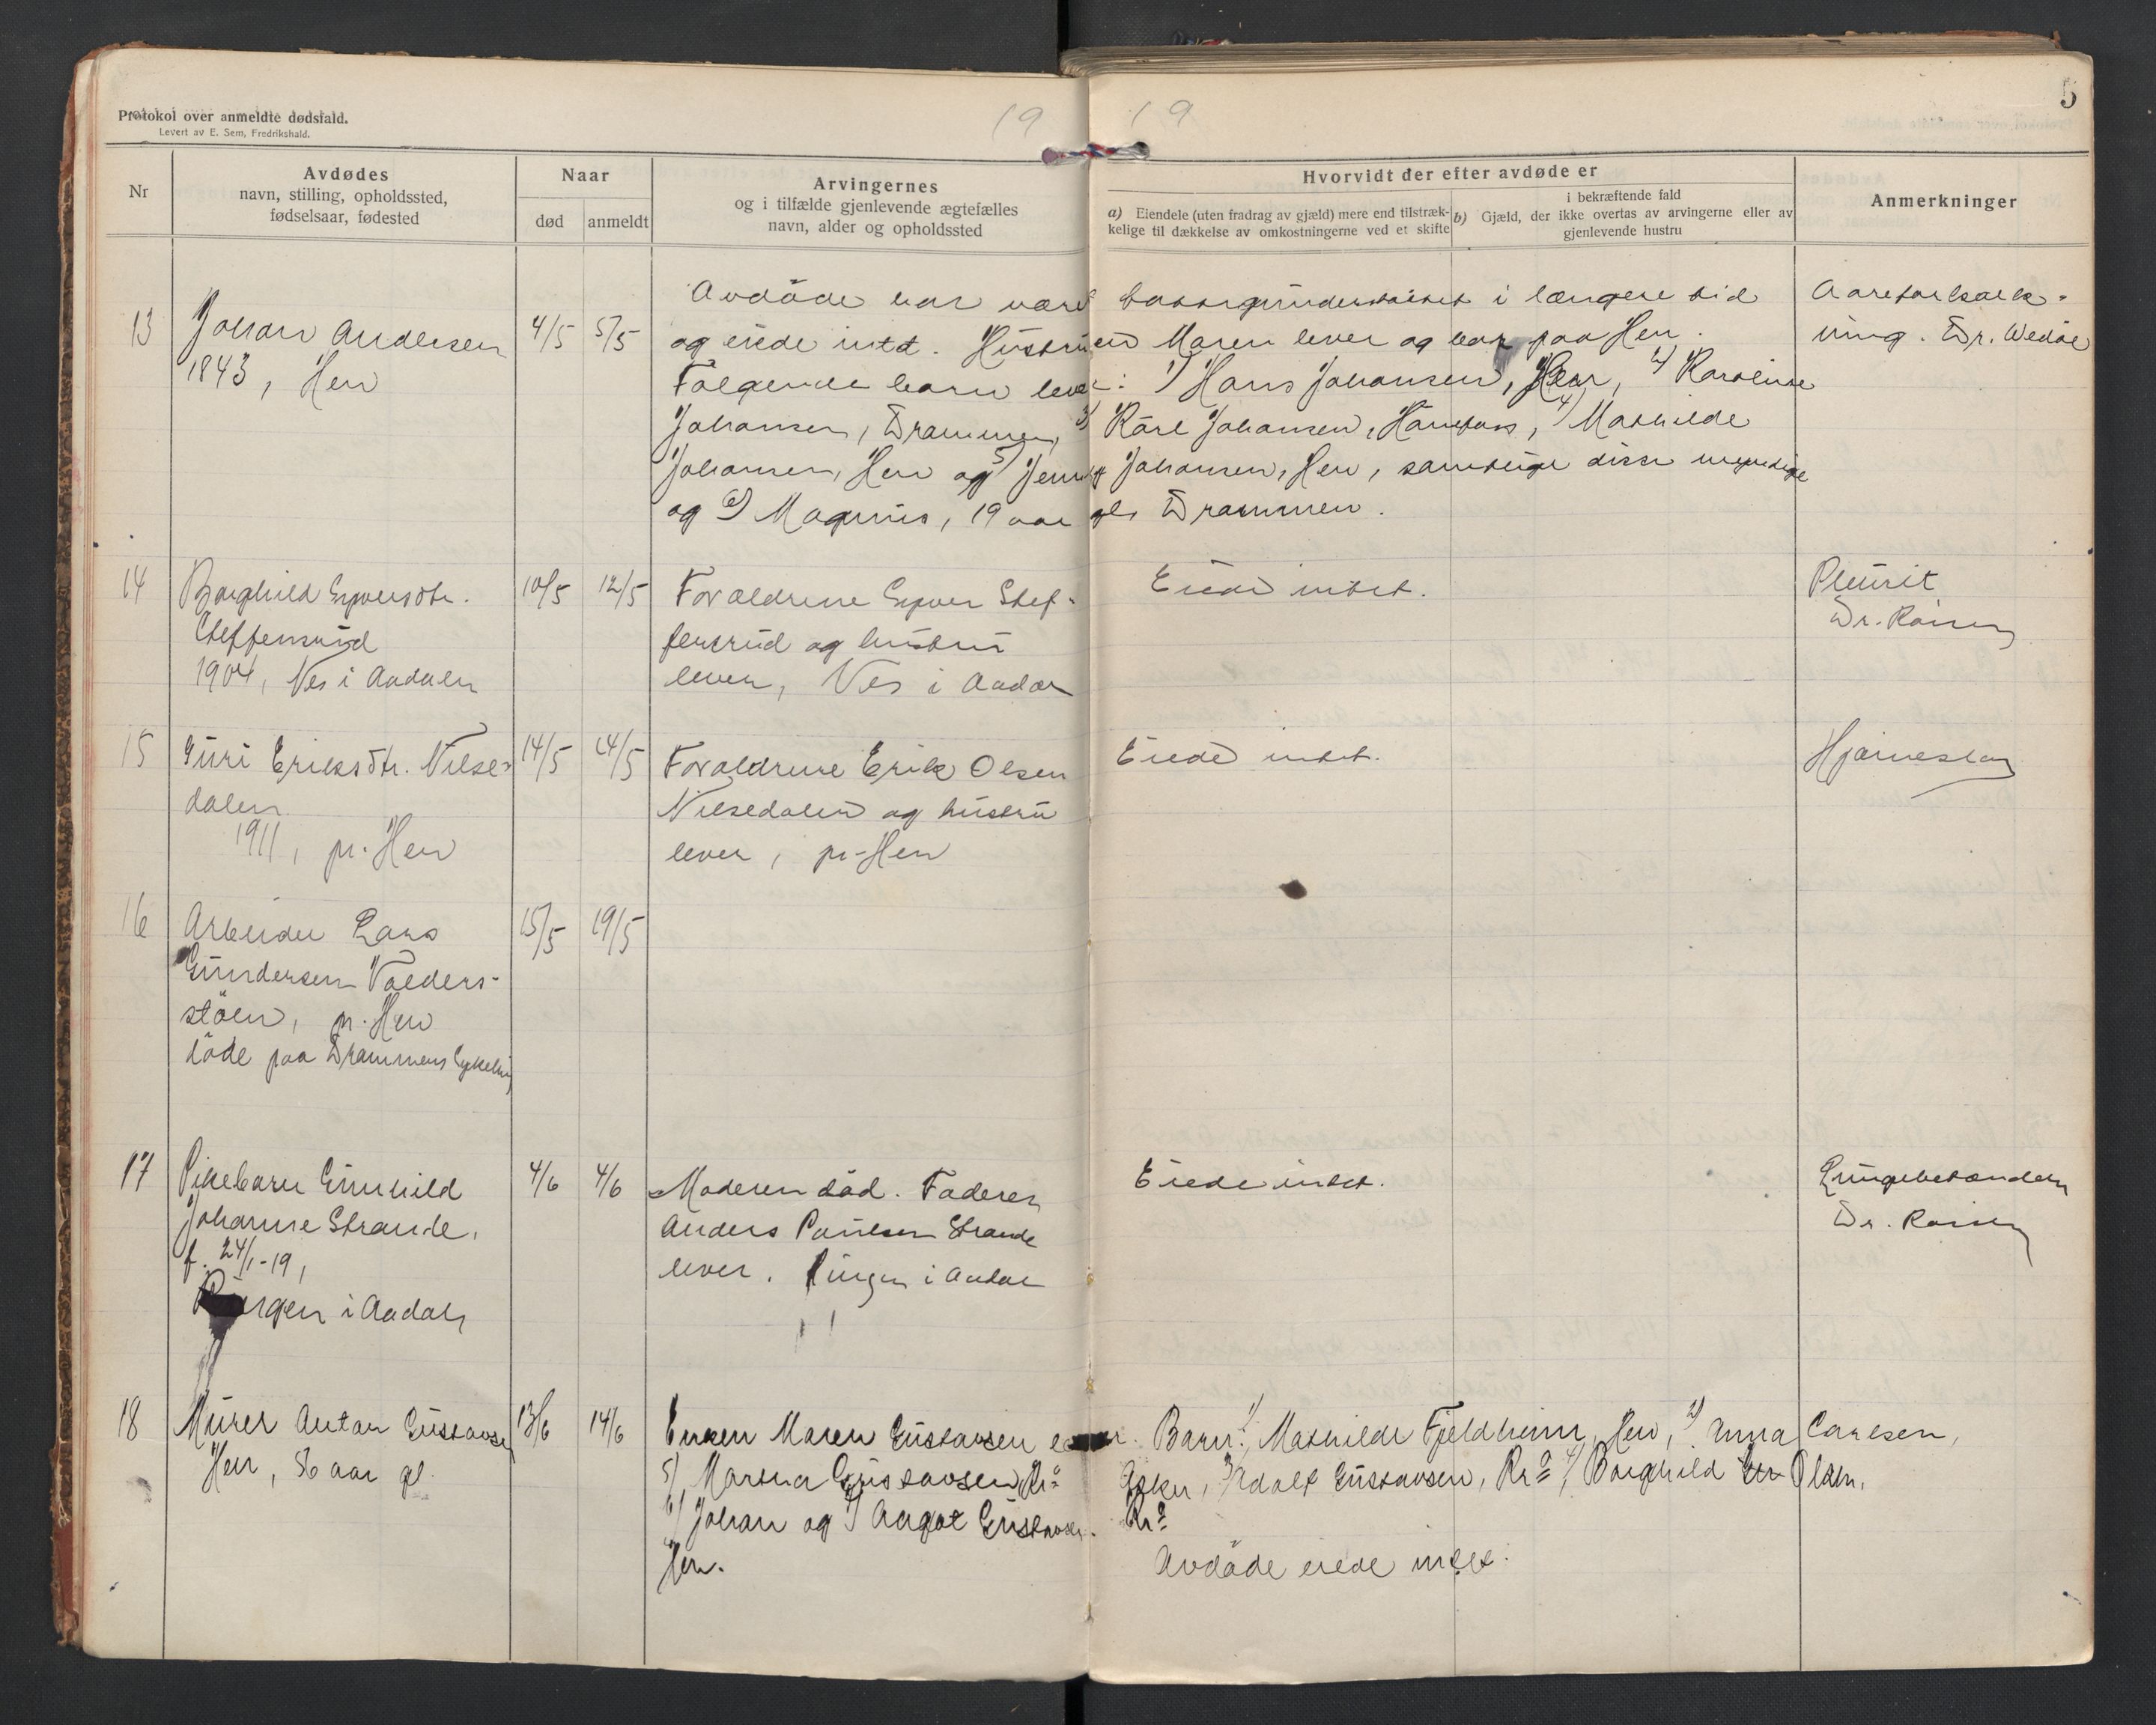 5
Protokol over anmeldte dødsfald.
Levert av E. Sem, Fredrikshald.
19
19
Nr
Avdødes
navn, stilling, opholdssted,
fødselsaar, fødested
Naar
død
anmeldt
Arvingernes
og i tilfælde gjenlevende ægtefælles
navn, alder og opholdssted
Hvorvidt der efter avdøde er
a) Eiendele (uten fradrag av gjæld) mere end tilstræk-
kelige til dækkelse av omkostningerne ved et skifte
i bekræftende fald
b) Gjæld, der ikke overtas av arvingerne eller av
gjenlevende hustru
Anmerkninger
13
Johan Andersen
1843, Hen
4/5
5/5
Avdöde har været fattigunderstöttet i længere tid
og eiede intet. Hustruen Maren lever og bor paa Hen.
Følgende barn lever: 1) Hans Johansen, Hen, 2) Karoline
Johansen, Drammen, 3) Karl Johansen, Hönefoss, 4) Mathilde
Johansen, Hen og 5) Jenny Johansen, Hen, samtlige disse myndige
og 6) Magnus, 19 aar gl. Drammen.
Aareforkalk-
ning. Dr. Wedøe
14
Borghild Syversdtr.
Steffensrud
1904, Nes i Aadalen
10/5
12/5
Forældrene Syver Stef-
fensrud og hustru
lever, Nes i Aadal
Eiede intet.
Pleurit
Dr.
15
Guri Eriksdtr. Nilse-
dalen
1911, pr. Hen
14/5
24/5
Forældrene Erik Olsen
Nilsedalen og hustru
lever, pr. Hen
Eiede intet.
Hjerneslag
16
Arbeider Lars
Gundersen Valders-
støen, pr. Hen
döde paa Drammens Sykehus
15/5
19/5
17
Pikebarn Gunhild
Johanne Strande,
f. 24/1-19,
Ringen i Aadalen
4/6
4/6
Moderen död. Faderen
Anders Paulsen Strande
lever. Ringen i Aadal
Eiede intet.
Lungebetændelse
Dr.
18
Murer Anton Gustavsen
Hen, 56 aar gl.
13/6
14/6
Enken Maren Gustavsen lever. Barn: 1) Mathilde Fjeldheim, Hen, 2) Anna Carlsen,
Asker, 3) Adolf Gustavsen, Kr.a 4) Borghild Olsen,
Kr.a
5) Martha Gustavsen, Kr.a
6) Johan og 7) Aagot Gustavsen.
Hen.
Avdöde eiede intet.